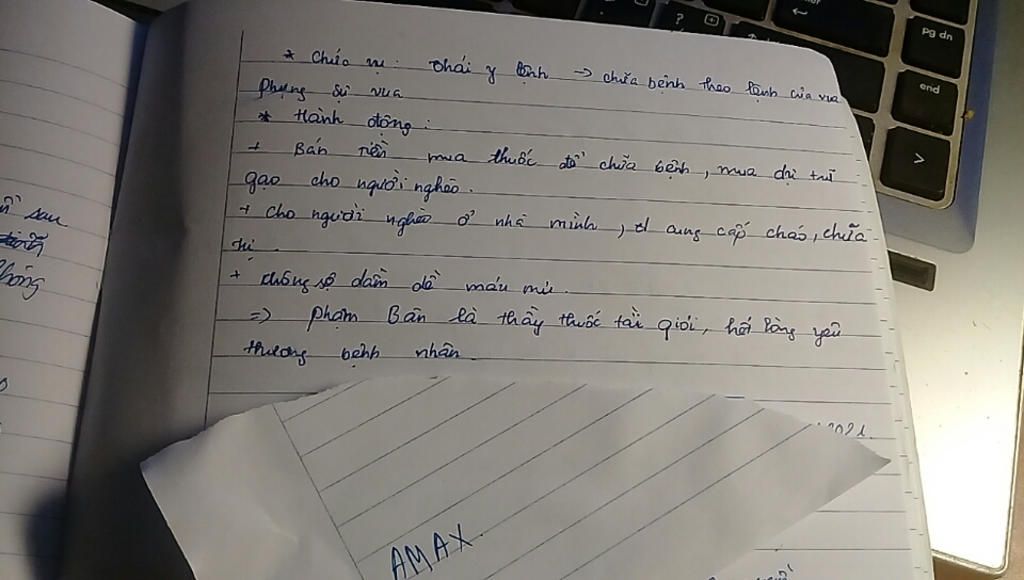 * Chức vụ: Thái y lệnh → chữa bệnh theo lệnh của vua
phụng sự vua
* Hành động:
+ Bán tiền mua thuốc để chữa bệnh, mua dự trữ
gạo cho người nghèo.
+ Cho người nghèo ở nhà mình, cung cấp cháo, chữa
trị.
+ không sợ dầm dề máu mủ.
=> Phạm Bân là thầy thuốc tài giỏi, hết lòng yêu
thương bệnh nhân.
2021.
AMAX
sau
không
Page dn
end
?
>